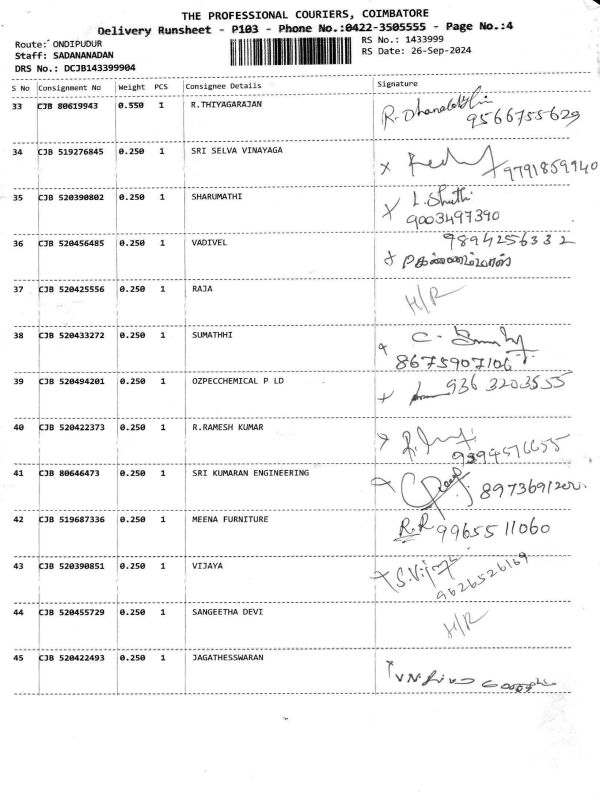 THE PROFESSIONAL COURIERS, COIMBATORE
Delivery Runsheet - P103 - Phone No.:0422-3505555 - Page No.:4
Route: ONDIPUDUR
RS No.: 1433999
Staff: SADANANADAN
RS Date: 26-Sep-2024
DRS No.: DCJB143399904
S No Consignment No Weight PCS Consignee Details Signature
33 CJB 80619943 0.550 1 R.THIYAGARAJAN
9566755629
34 CJB 519276845 0.250 1 SRI SELVA VINAYAGA
9791859940
35 CJB 520390802 0.250 1 SHARUMATHI L. Shuthi
9003497390
9894256332
36 CJB 520456485 0.250 1 VADIVEL
37 CJB 520425556 0.250 1 RAJA H/R
38 CJB 520433272 0.250 1 SUMATHHI
8675907106
39 CJB 520494201 0.250 1 OZPECCHEMICAL P LD 9363203555
40 CJB 520422373 0.250 1 R.RAMESH KUMAR
41 CJB 80646473 0.250 1 SRI KUMARAN ENGINEERING
42 CJB 519687336 0.250 1 MEENA FURNITURE R.R 9965511060
43 CJB 520390851 0.250 1 VIJAYA
9626526169
44 CJB 520455729 0.250 1 SANGEETHA DEVI H/R
45 CJB 520422493 0.250 1 JAGATHESSWARAN